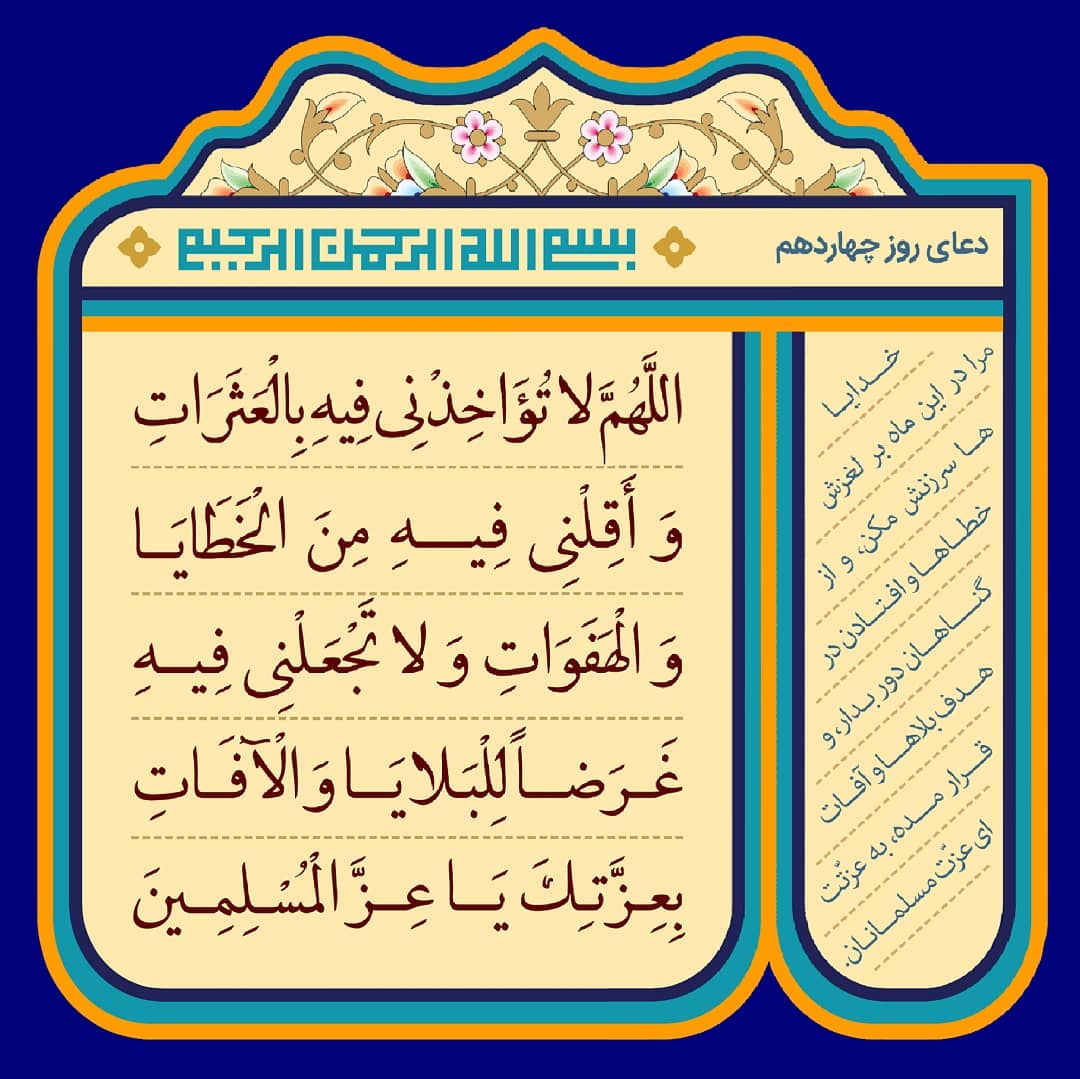 دعای روز چهاردهم
بسم الله الرحمن الرحیم
اللَّهُمَّ لا تُؤَاخِذْنِی فِیهِ بِالْعَثَرَاتِ
وَ أَقِلْنِی فِیهِ مِنَ الْخَطَایَا
وَ الْهَفَوَاتِ وَ لا تَجْعَلْنِی فِیهِ
غَرَضاً لِلْبَلایَا وَ الْآفَاتِ
بِعِزَّتِكَ یَا عِزَّ الْمُسْلِمِینَ
خدایا
مرا در این ماه بر لغزش
ها سرزنش مکن، و از
خطاها و افتادن در
گناهان دور بدار، و
هدف بلاها و آفات
قرار مده، به عزتّت
ای عزّت مسلمانان.